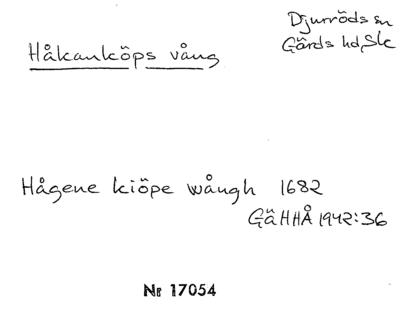 Djurröds sn
Gärds hd, Sk
Håkanköps vång
Hågene kiöpe wångh 1682
GäHHÅ 1942:36
Nr 17054